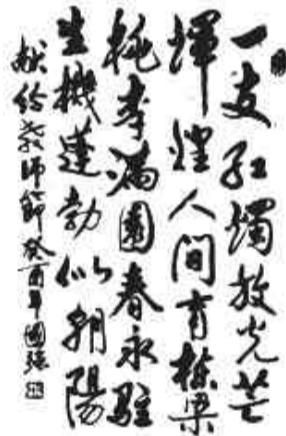 一支红烛放光芒
辉煌人间育栋梁
桃李满园春永驻
生機蓬勃似朝陽
献给教師節 癸酉年國强